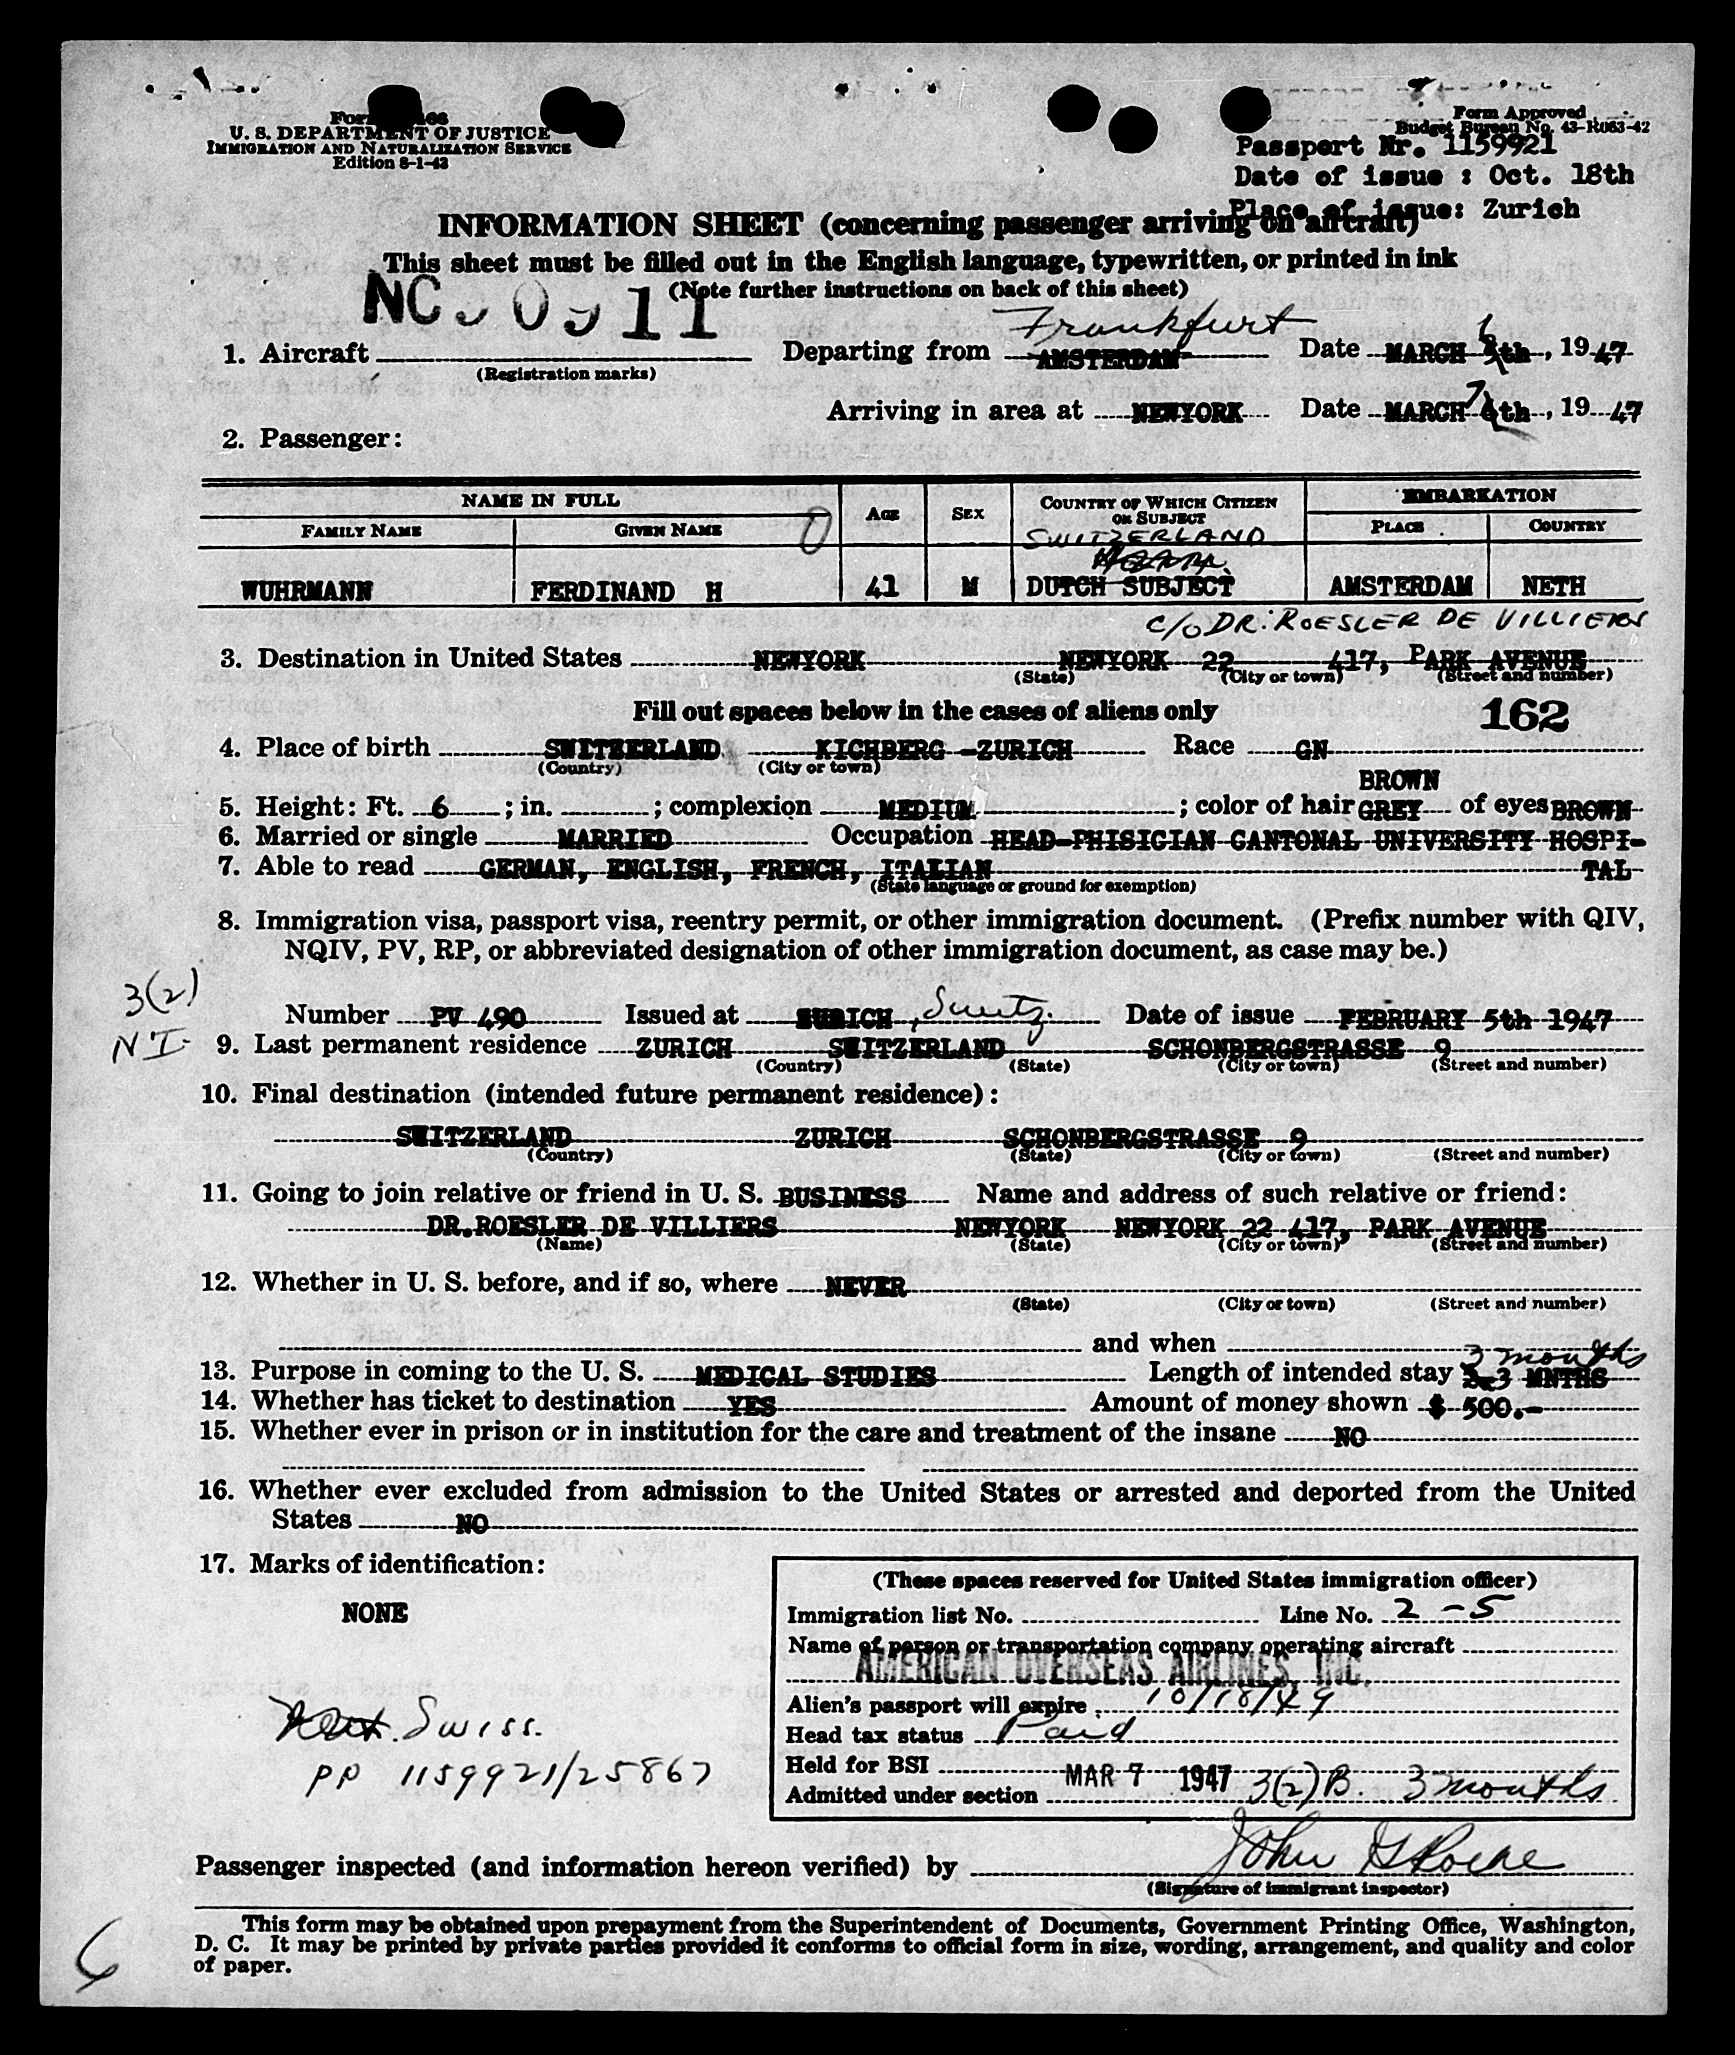 Form
U. S. DEPARTMENT OF JUSTICE
IMMIGRATION AND NATURALIZATION SERVICE
Edition 8-1-43
Form Approved
Budget Bureau No. 43-R063-42
Passport Nr. 1159921
Date of issue : Oct. 18th
Place of issue: Zurich
INFORMATION SHEET (concerning passenger arriving on aircraft)
This sheet must be filled out in the English language, typewritten, or printed in ink
(Note further instructions on back of this sheet)
NC 90911
Frankfurt
1. Aircraft Departing from AMSTERDAM Date MARCH 6 th, 1947
(Registration marks)
Arriving in area at NEWYORK Date MARCH 7 6th, 1947
2. Passenger:
NAME IN FULL AGE SEX COUNTRY OF WHICH CITIZEN OR SUBJECT EMBARKATION
FAMILY NAME GIVEN NAME PLACE COUNTRY
SWITZERLAND
WUHRMANN FERDINAND H 41 M DUTCH SUBJECT AMSTERDAM NETH
C/O DR. ROESLER DE VILLIERS
3. Destination in United States NEWYORK NEWYORK 22 417, PARK AVENUE
(State) (City or town) (Street and number)
Fill out spaces below in the cases of aliens only 162
4. Place of birth SWITZERLAND KICHBERG -ZURICH Race GN
(Country) (City or town)
BROWN
5. Height: Ft. 6 ; in. ; complexion MEDIUM ; color of hair GREY of eyes BROWN
6. Married or single MARRIED Occupation HEAD-PHISICIAN CANTONAL UNIVERSITY HOSPI-
7. Able to read GERMAN, ENGLISH, FRENCH, ITALIAN TAL
(State language or ground for exemption)
8. Immigration visa, passport visa, reentry permit, or other immigration document. (Prefix number with QIV,
NQIV, PV, RP, or abbreviated designation of other immigration document, as case may be.)
3(2)
Number PV 490 Issued at ZURICH, Switz. Date of issue FEBRUARY 5th 1947
NI-
9. Last permanent residence ZURICH SWITZERLAND SCHONBERGSTRASSE 9
(Country) (State) (City or town) (Street and number)
10. Final destination (intended future permanent residence):
SWITZERLAND ZURICH SCHONBERGSTRASSE 9
(Country) (State) (City or town) (Street and number)
11. Going to join relative or friend in U. S. BUSINESS Name and address of such relative or friend:
DR.ROESLER DE VILLIERS NEWYORK NEWYORK 22 417, PARK AVENUE
(Name) (State) (City or town) (Street and number)
12. Whether in U. S. before, and if so, where NEVER
(State) (City or town) (Street and number)
and when
3 months
13. Purpose in coming to the U. S. MEDICAL STUDIES Length of intended stay 2-3 MNTHS
14. Whether has ticket to destination YES Amount of money shown $ 500.-
15. Whether ever in prison or in institution for the care and treatment of the insane NO
16. Whether ever excluded from admission to the United States or arrested and deported from the United
States NO
17. Marks of identification:
NONE
(These spaces reserved for United States immigration officer)
Immigration list No. Line No. 2 - 5
Name of person or transportation company operating aircraft
AMERICAN OVERSEAS AIRLINES, INC.
Alien's passport will expire 10/18/49
Head tax status Paid
Held for BSI
MAR 7 1947
Admitted under section 3(2)B. 3 months
Swiss.
PP 1159921/25867
Passenger inspected (and information hereon verified) by John
(Signature of immigrant inspector)
This form may be obtained upon prepayment from the Superintendent of Documents, Government Printing Office, Washington,
D. C. It may be printed by private parties provided it conforms to official form in size, wording, arrangement, and quality and color
of paper.